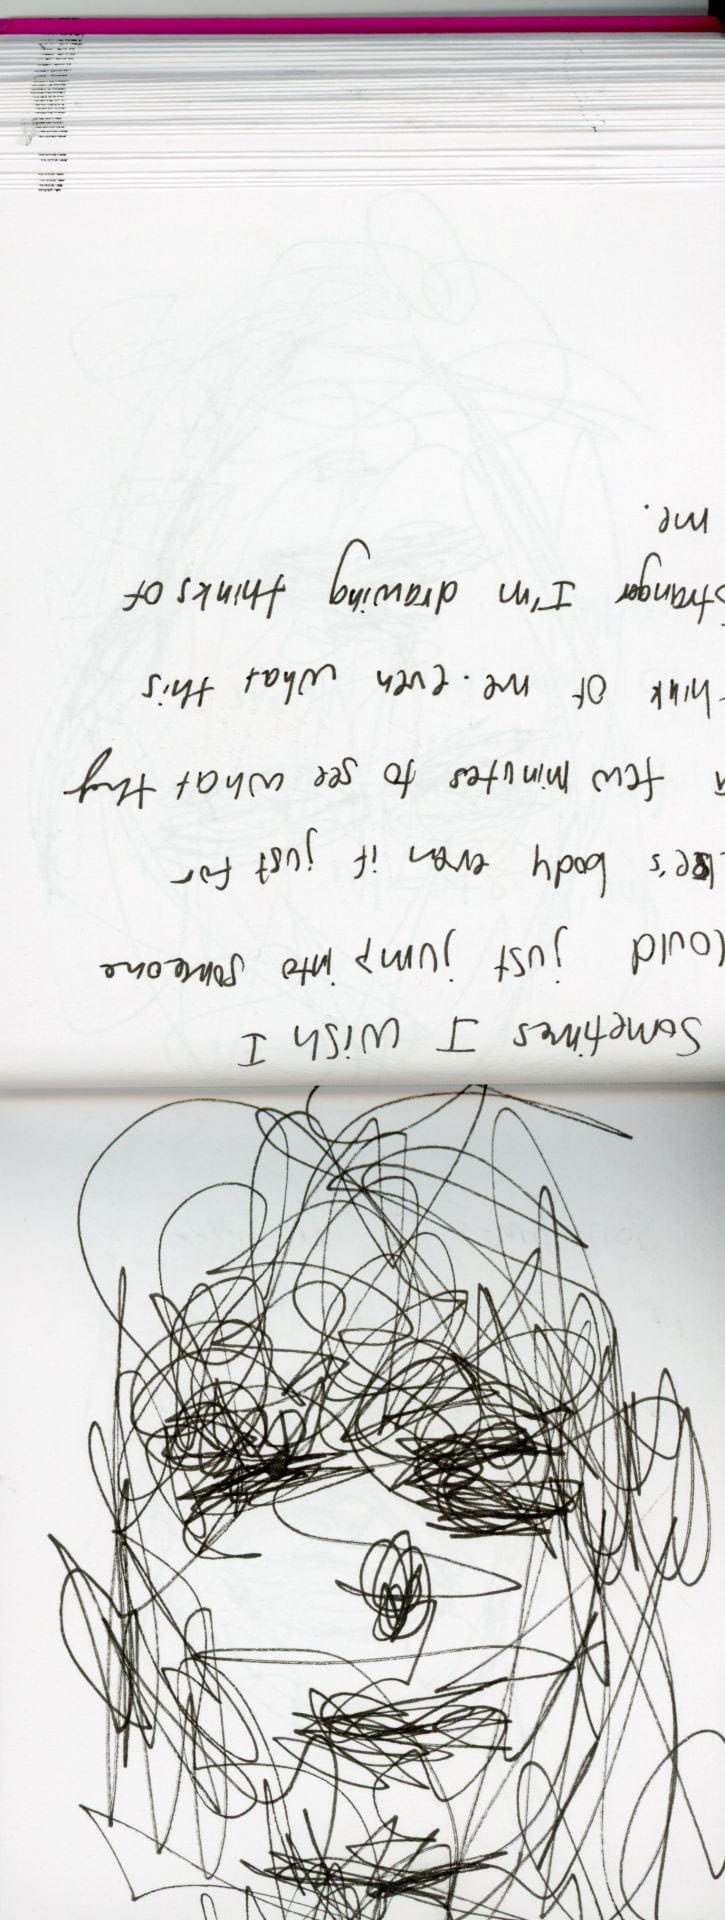 Sometimes I WISH I
Could just jump into someone
else's body even if just for
a few minutes to see what they
think of me. even what this
stranger I'm drawing thinks of
me.